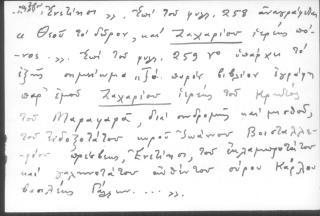 Ἐνετίησι ». Ἐπὶ τοῦ φυλλ. 258 ἀναγράφεται
« Θεοῦ τὸ δῶρον, καὶ Ζαχαρίου ἱερέως πό-
νος ». Ἐπὶ τοῦ φυλλ. 259 ὑπάρχει τὸ
ἑξῆς σημείωμα « Τὸ παρὸν βιβλίον ἐγράφη
παρ' ἐμοῦ Ζαχαρίου ἱερέως τοῦ Κρητὸς
τοῦ Μαραφαρᾶ, διὰ συνδρομῆς καὶ μισθοῦ,
τοῦ ἐνδοξοτάτου κυροῦ Ἰωάννου
πρέσβεως, Ἐνετίησι, τοῦ ἐκλαμπροτάτου
καὶ γαληνοτάτου αὐθέντου κυροῦ Καρόλου
βασιλέως Γάλλων . . . ».